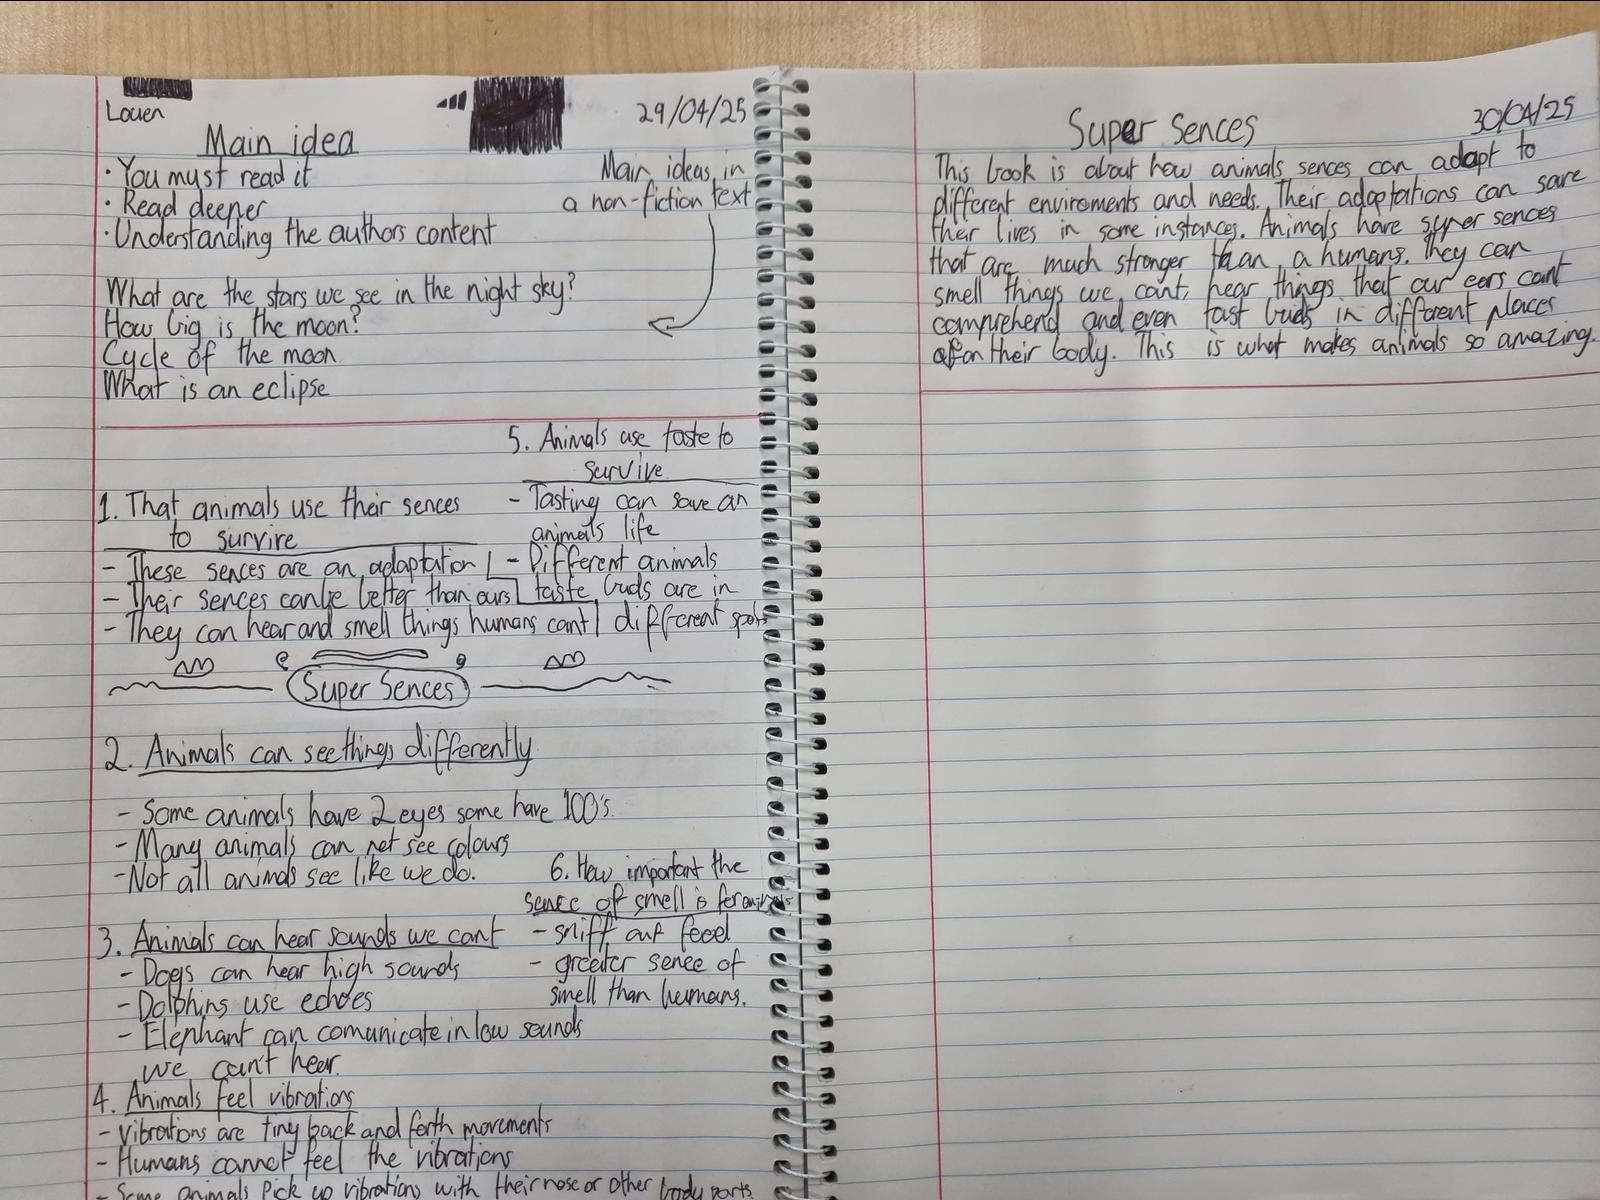 Louen
29/04/25
Main idea
• You must read it
• Read deeper
• Understanding the authors content
Main ideas in
a non-fiction text
What are the stars we see in the night sky?
How big is the moon?
Cycle of the moon
What is an eclipse
1. That animals use their sences
to survire
- These sences are an adaptation
- Their sences can be better than ours
- They can hear and smell things humans cant
5. Animals use taste to
survive
- Tasting can save an
animals life
- Different animals
taste buds are in
different spots
Super Sences
2. Animals can see things differently
- Some animals have 2 eyes some have 100's.
- Many animals can not see colours
- Not all animals see like we do.
3. Animals can hear sounds we cant
- Dogs can hear high sounds
- Dolphins use echoes
- Elephant can comunicate in low sounds
we can't hear.
6. How important the
sence of smell is for animals
- sniff out food
- greater sence of
smell than humans.
4. Animals feel vibrations
- Vibrations are tiny back and forth movements
- Humans cannot feel the vibrations
- Some animals pick up vibrations with their nose or other body parts
30/04/25
Super Sences
This book is about how animals sences can adapt to
different enviroments and needs. Their adaptations can save
their lives in some instances. Animals have super sences
that are much stronger than a humans. They can
smell things we cant, hear things that our ears cant
comprehend and even tast buds in different places
on their body. This is what makes animals so amazing.